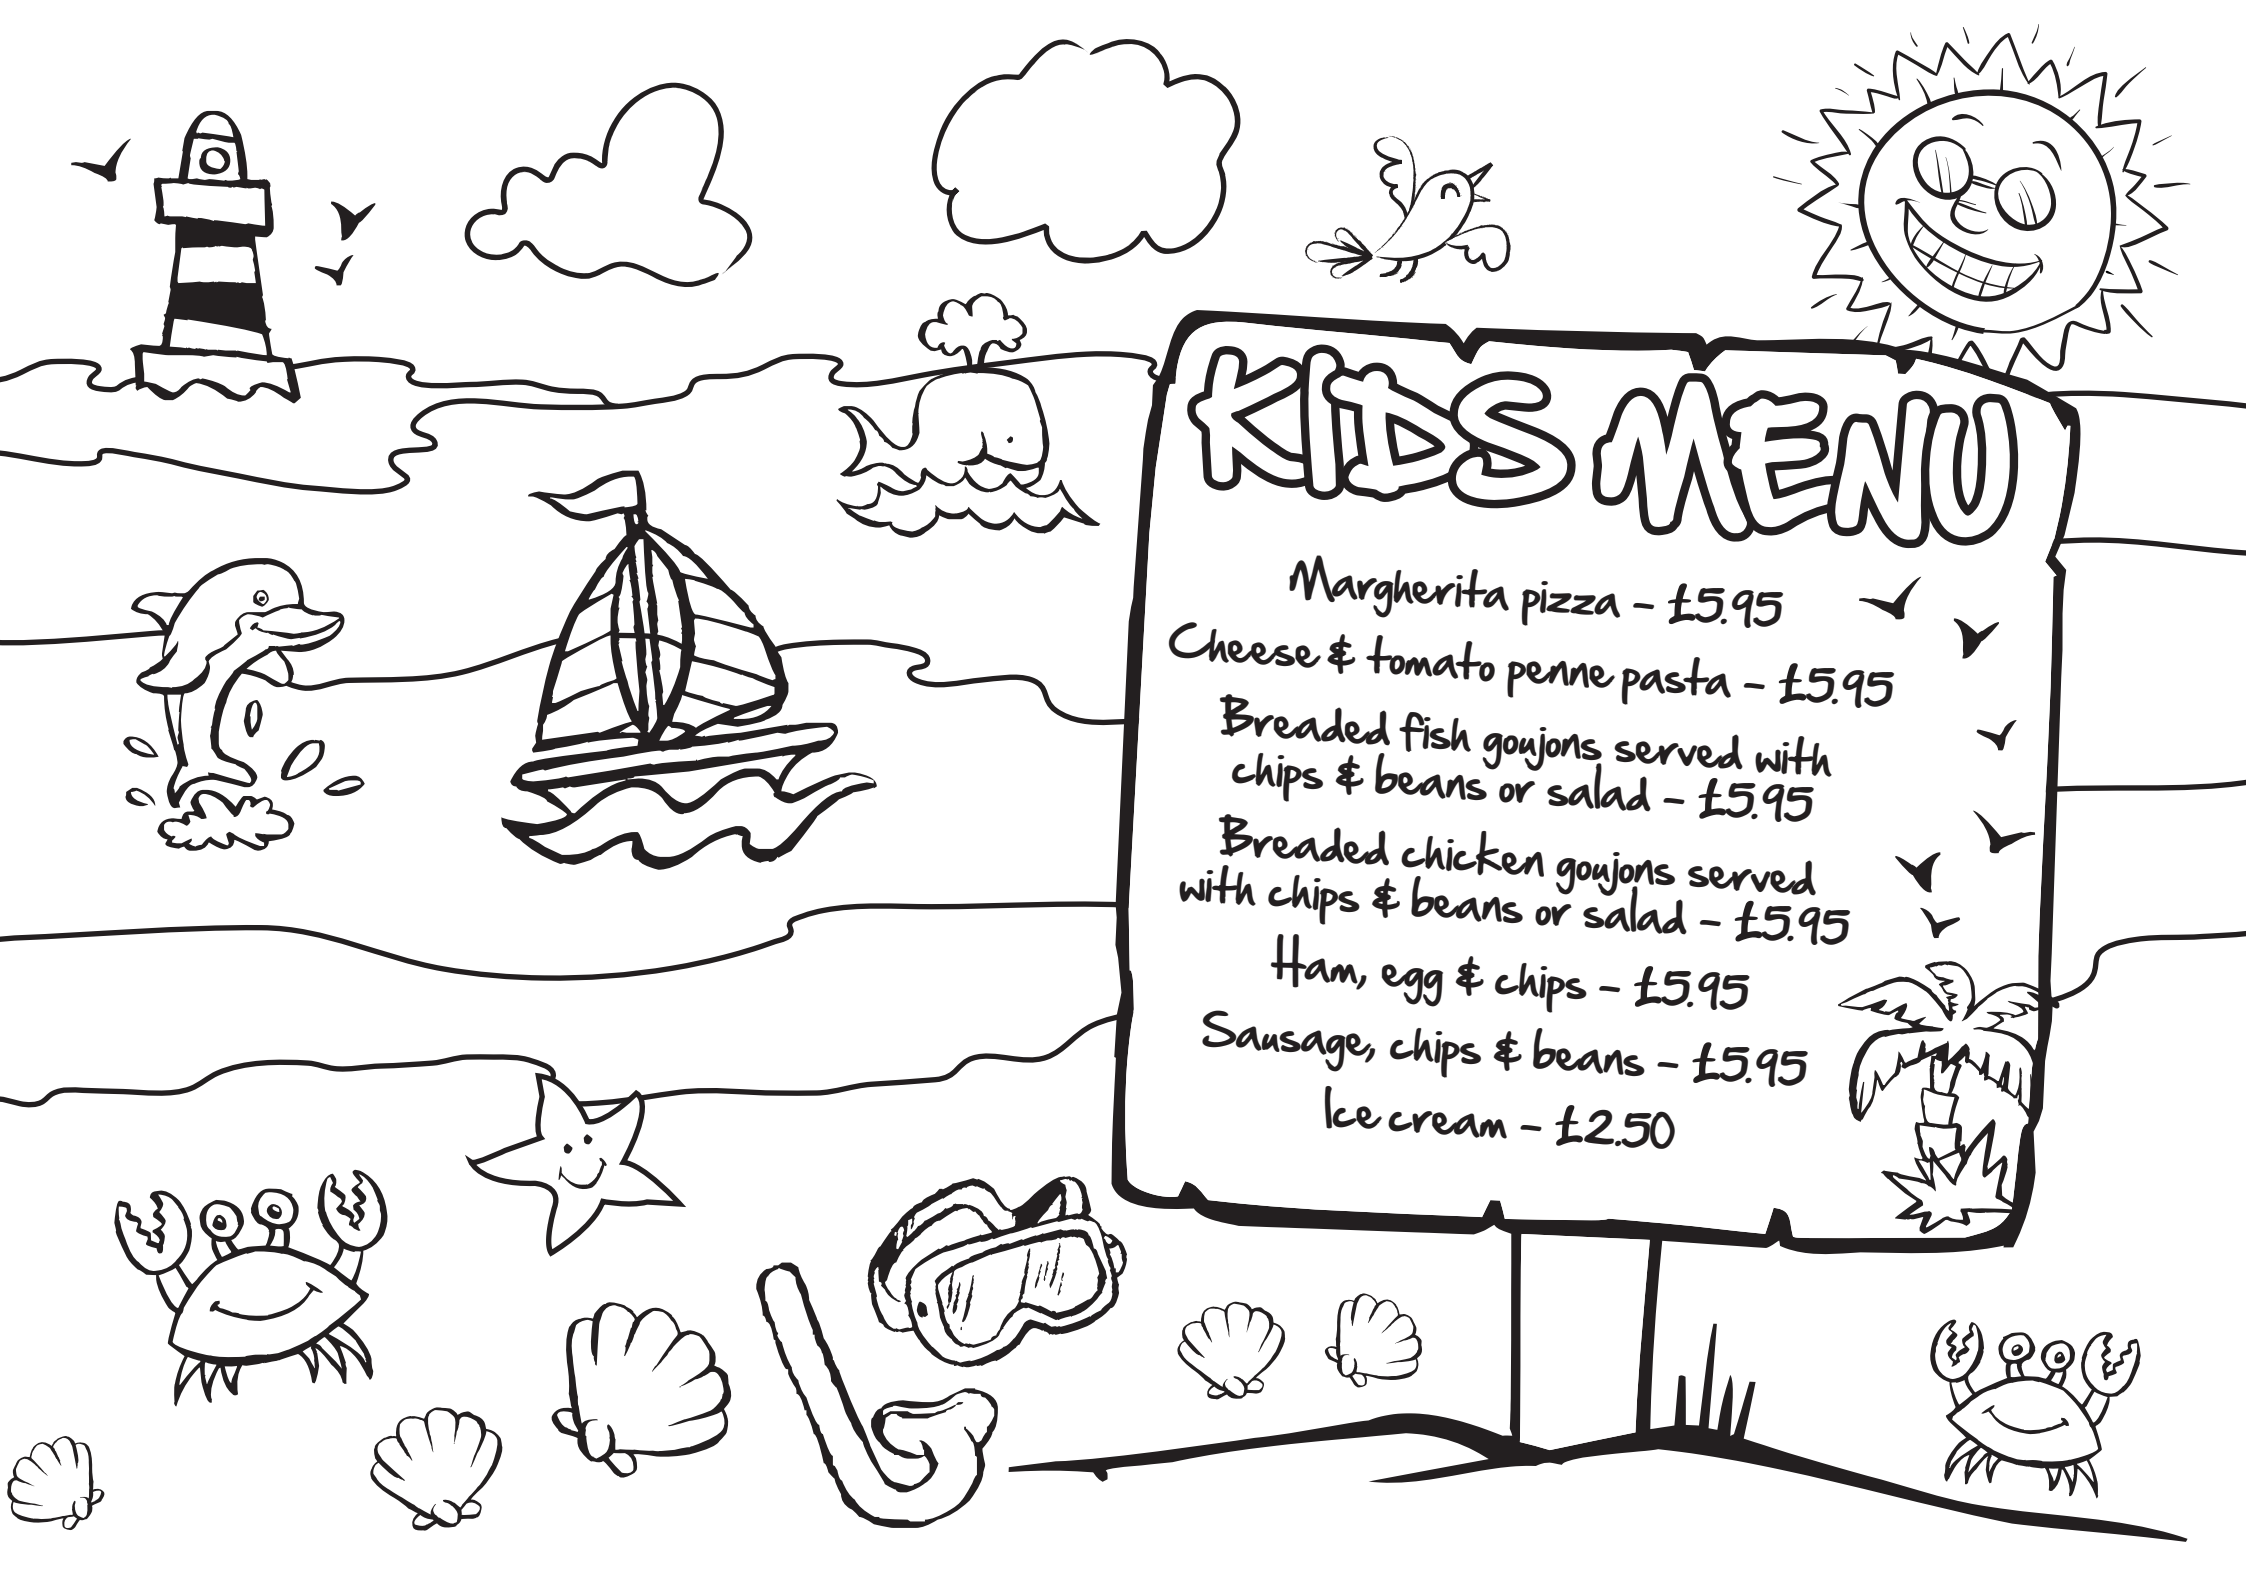 KIDS MENU
Margherita pizza – £5.95
Cheese & tomato penne pasta – £5.95
Breaded fish goujons served with
chips & beans or salad – £5.95
Breaded chicken goujons served
with chips & beans or salad – £5.95
Ham, egg & chips – £5.95
Sausage, chips & beans – £5.95
Ice cream – £2.50